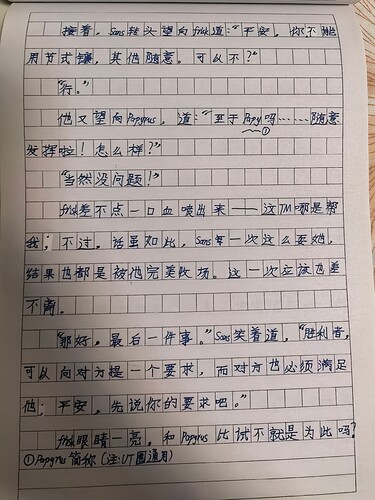 接着，Sans转头望向frisk道："平安，你不能
用节式镰，其他随意。可以不？"
"行。"
他又望向Papyrus，道："至于Papy吗……随意
①
发挥啦！怎么样？"
"当然没问题！"
frisk差不点一口血喷出来——这TM哪是帮
我；不过，话虽如此，Sans每一次这么耍她，
结果也都是被他完美收场。这一次应该也差
不离。
"那好。最后一件事。"Sans笑着道，"胜利者，
可以向对方提一个要求，而对方也必须满足
他；平安，先说你的要求吧。"
frisk眼睛一亮，和Papyrus比试不就是为此吗？
①Papyrus简称（注：UT圈通用）